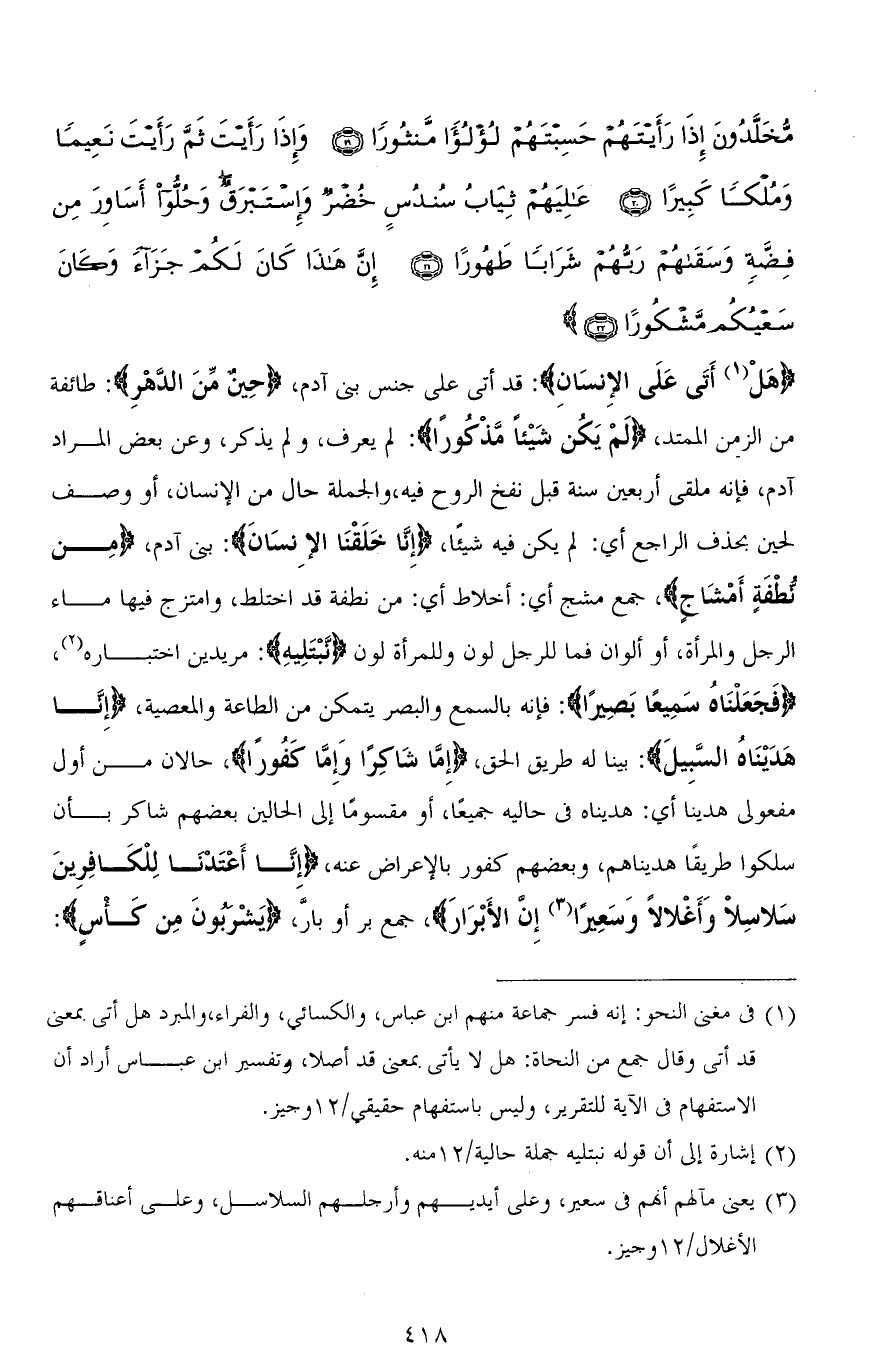 مُّخَلَّدُونَ إِذَا رَأَيْتَهُمْ حَسِبْتَهُمْ لُؤْلُؤًا مَّنثُورًا ۝١٩ وَإِذَا رَأَيْتَ ثَمَّ رَأَيْتَ نَعِيمًا
وَمُلْكًا كَبِيرًا ۝٢٠ عَـٰلِيَهُمْ ثِيَابُ سُندُسٍ خُضْرٌ وَإِسْتَبْرَقٌ ۖ وَحُلُّوٓا۟ أَسَاوِرَ مِن
فِضَّةٍ وَسَقَىٰهُمْ رَبُّهُمْ شَرَابًا طَهُورًا ۝٢١ إِنَّ هَـٰذَا كَانَ لَكُمْ جَزَآءً وَكَانَ
سَعْيُكُم مَّشْكُورًا ۝٢٢﴾
﴿هَلْ(١) أَتَى عَلَى الإِنسَانِ﴾: قد أتى على جنس بنى آدم، ﴿حِينٌ مِّنَ الدَّهْرِ﴾: طائفة
من الزمن الممتد، ﴿لَمْ يَكُن شَيْئاً مَّذْكُورًا﴾: لم يعرف، ولم يذكر، وعن بعض المراد
آدم، فإنه ملقى أربعين سنة قبل نفخ الروح فيه،والجملة حال من الإنسان، أو وصف
لحين بحذف الراجع أي: لم يكن فيه شيئًا، ﴿إِنَّا خَلَقْنَا الإِنسَانَ﴾: بنى آدم، ﴿مِن
نُّطْفَةٍ أَمْشَاجٍ﴾، جمع مشج أي: أخلاط أي: من نطفة قد اختلط، وامتزج فيها ماء
الرجل والمرأة، أو ألوان فما للرجل لون وللمرأة لون ﴿نَّبْتَلِيهِ﴾: مريدين اختباره(٢)،
﴿فَجَعَلْنَاهُ سَمِيعًا بَصِيرًا﴾: فإنه بالسمع والبصر يتمكن من الطاعة والمعصية، ﴿إِنَّا
هَدَيْنَاهُ السَّبِيلَ﴾: بينا له طريق الحق، ﴿إِمَّا شَاكِرًا وَإِمَّا كَفُورًا﴾، حالان من أول
مفعولى هدينا أي: هديناه فى حاليه جميعًا، أو مقسومًا إلى الحالين بعضهم شاكر بأن
سلكوا طريقًا هديناهم، وبعضهم كفور بالإعراض عنه، ﴿إِنَّا أَعْتَدْنَا لِلْكَافِرِينَ
سَلاسِلاْ وَأَغْلالاً وَسَعِيرًا(٣) إِنَّ الأَبْرَارَ﴾، جمع بر أو بارَّ، ﴿يَشْرَبُونَ مِن كَأْسٍ﴾:
(١) فى مغنى النحو: إنه فسر جماعة منهم ابن عباس، والكسائي، والفراء،والمبرد هل أتى بمعنى
قد أتى وقال جمع من النحاة: هل لا يأتى بمعنى قد أصلا، وتفسير ابن عباس أراد أن
الاستفهام فى الآية للتقرير، وليس باستفهام حقيقي/١٢وجيز.
(٢) إشارة إلى أن قوله نبتليه جملة حالية/١٢منه.
(٣) يعنى مآلهم أنهم فى سعير، وعلى أيديهم وأرجلهم السلاسل، وعلى أعناقهم
الأغلال/١٢وجيز.
٤١٨